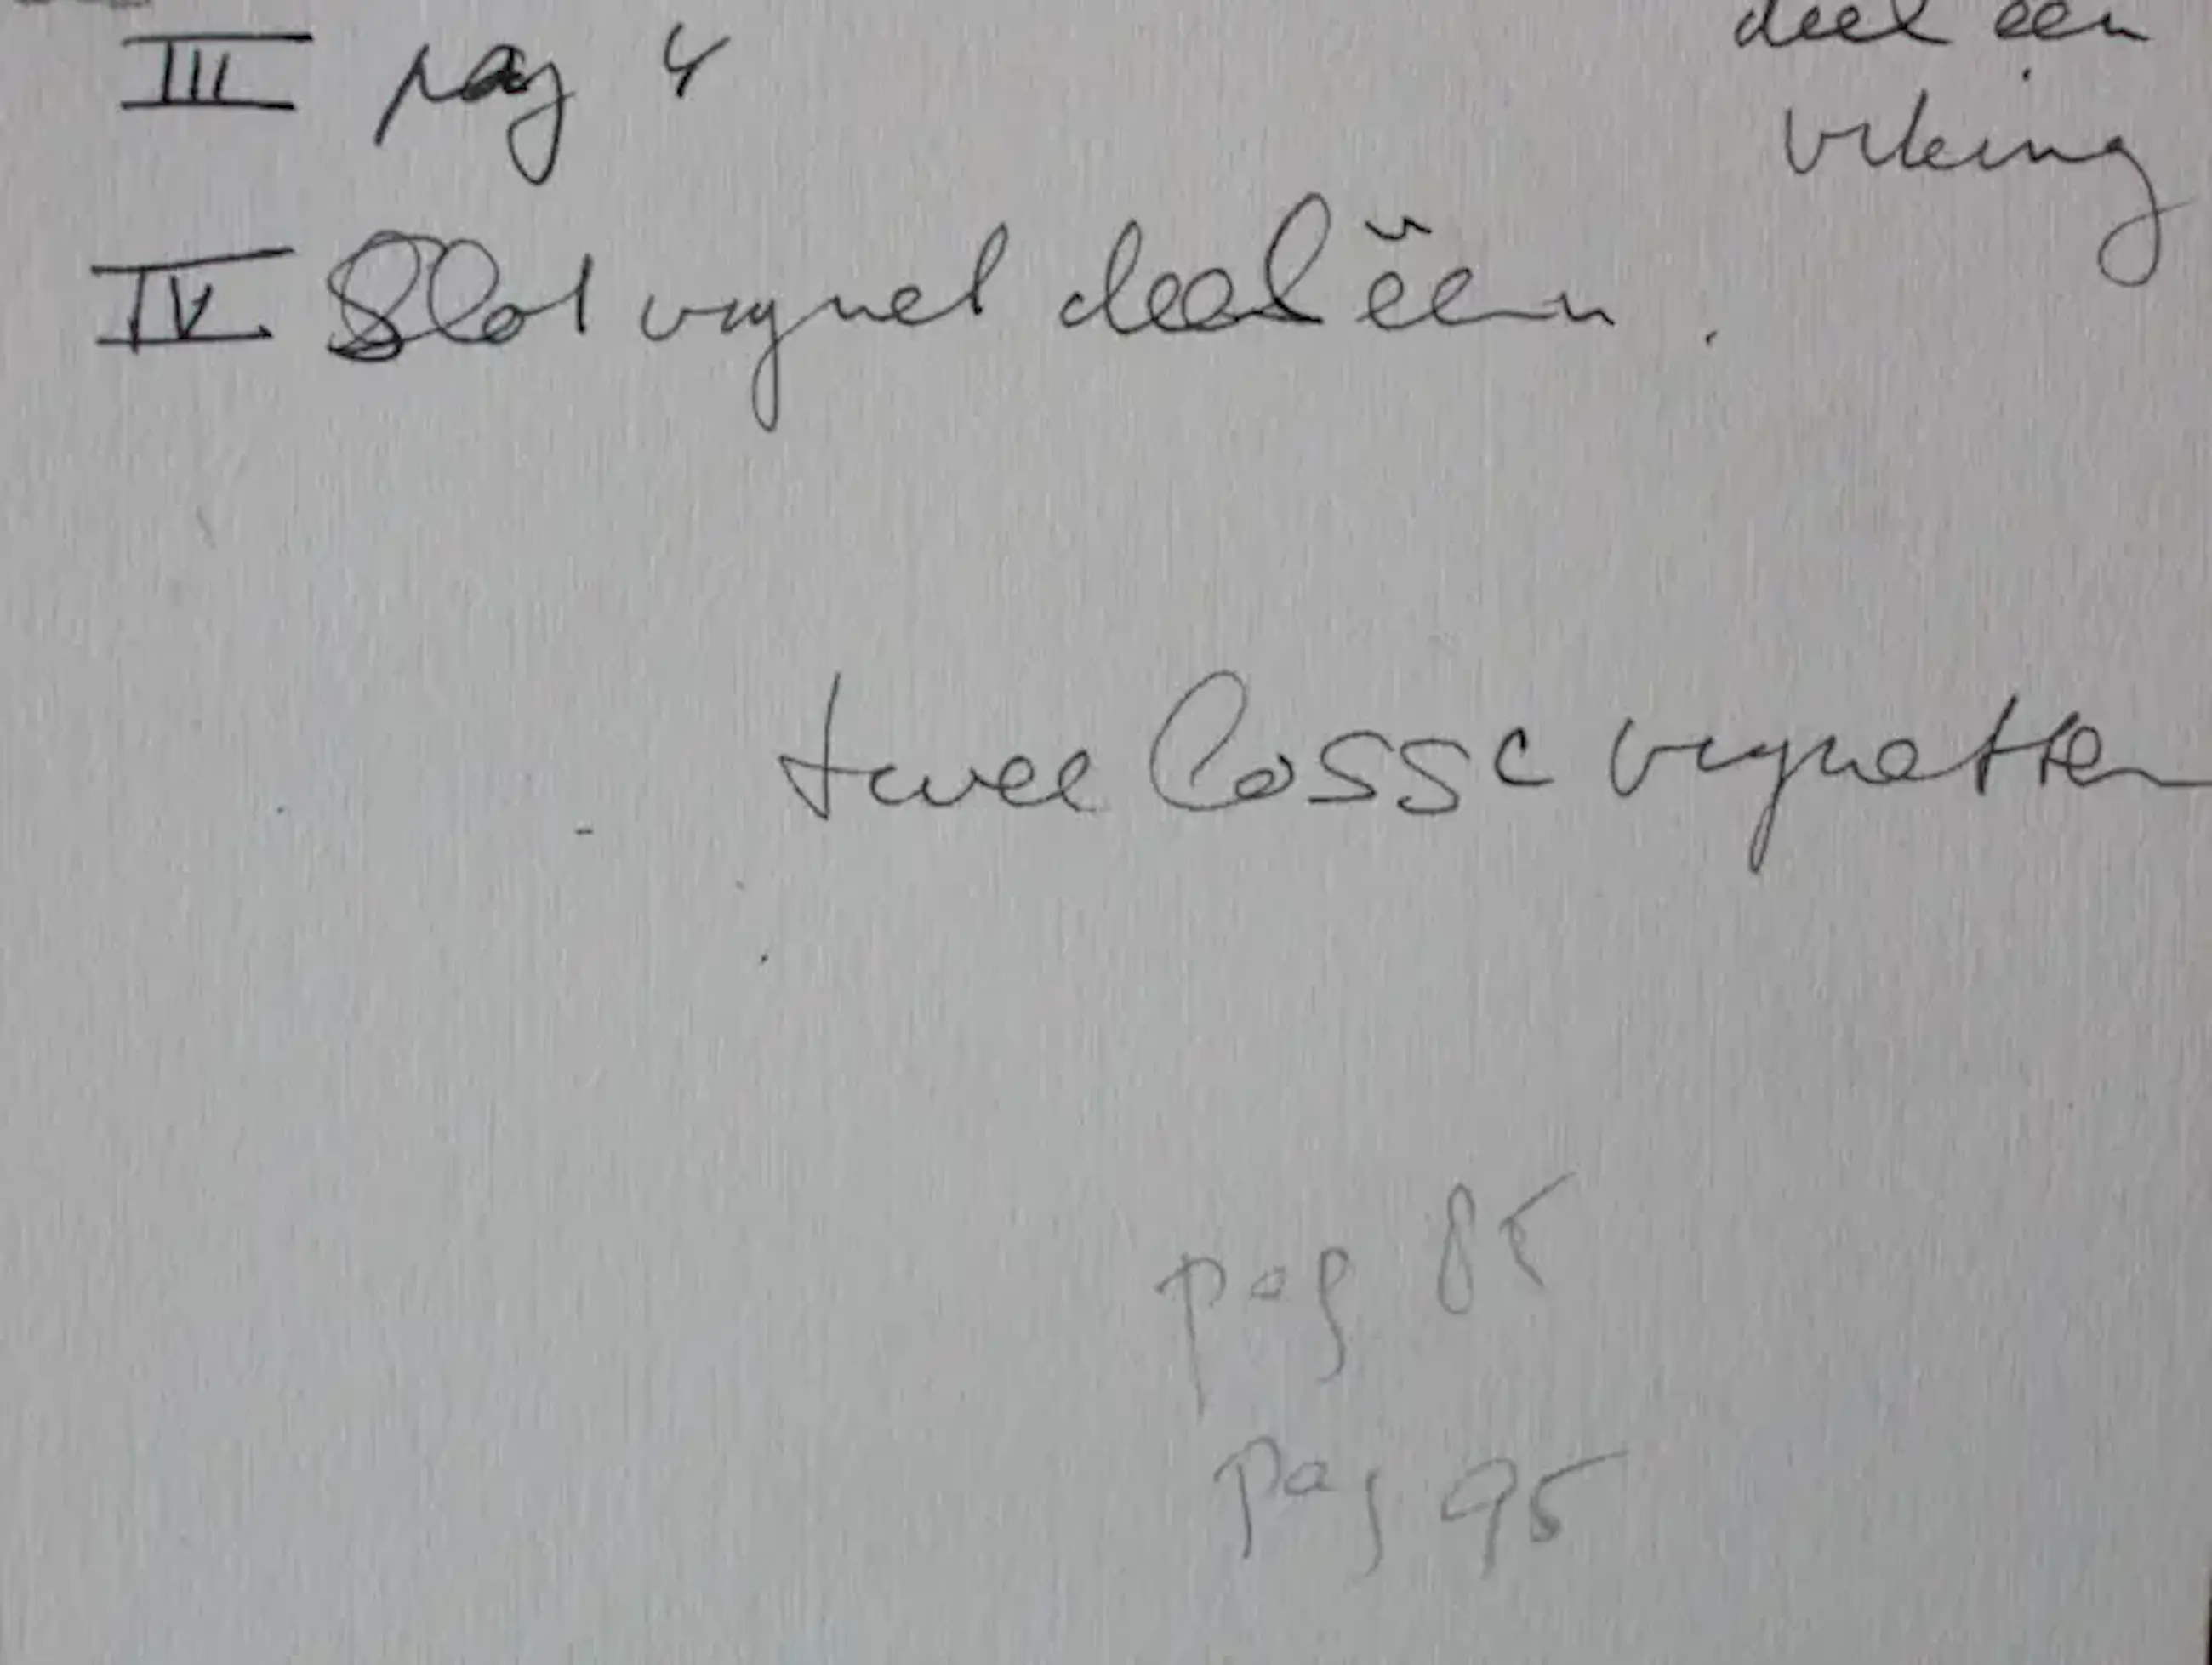 deel een
III pag 4
viking
IV Slot vignet deel één.
twee losse vignetten
pag 85
pag 95